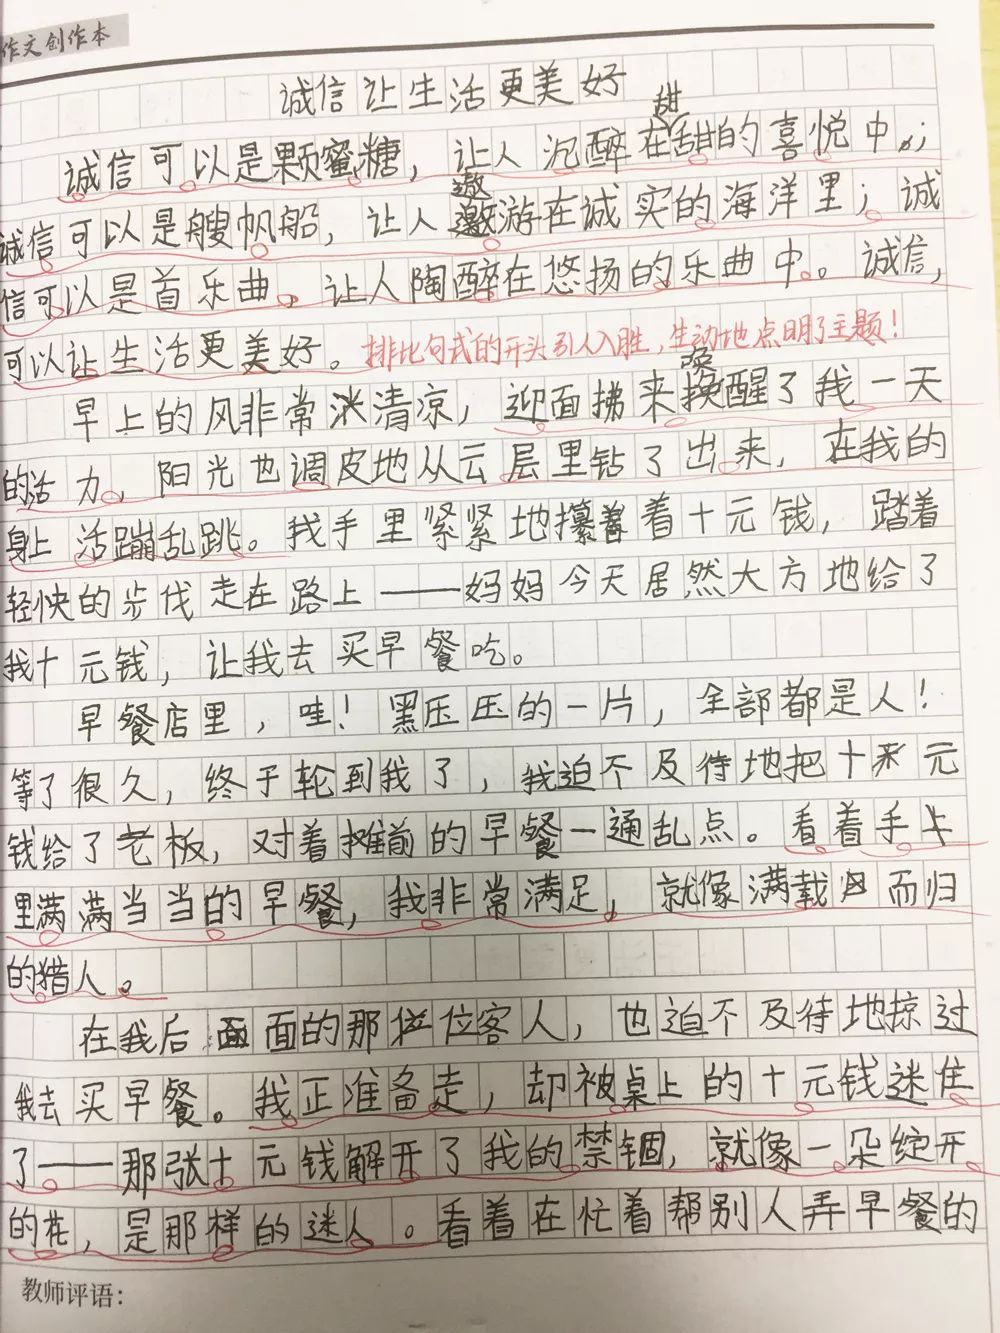 作文创作本
诚信让生活更美好
甜
诚信可以是颗蜜糖，让人沉醉在甜的喜悦中；
遨
诚信可以是艘帆船，让人遨游在诚实的海洋里；诚
信可以是首乐曲，让人陶醉在悠扬的乐曲中。诚信，
可以让生活更美好。排比句式的开头引人入胜，生动地点明了主题！
唤
早上的风非常清凉，迎面拂来换醒了我一天
的活力，阳光也调皮地从云层里钻了出来，在我的
身上活蹦乱跳。我手里紧紧地攥着十元钱，踏着
轻快的步伐走在路上——妈妈今天居然大方地给了
我十元钱，让我去买早餐吃。
早餐店里，哇！黑压压的一片，全部都是人！
等了很久，终于轮到我了，我迫不及待地把十元
钱给了老板，对着摊前的早餐一通乱点。看着手
里满满当当的早餐，我非常满足，就像满载而归
的猎人。
在我后面的那位客人，也迫不及待地掠过
我去买早餐。我正准备走，却被桌上的十元钱迷住
了——那张十元钱解开了我的禁锢，就像一朵绽开
的花，是那样的迷人。看着在忙着帮别人弄早餐的
教师评语：